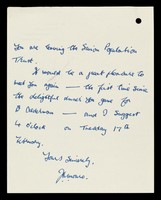 You are leaving the Senior Population
Trust.
It would be a great pleasure to
see you again — the first time since
the delightful lunch you gave for
— and I suggest
4 o'clock on Tuesday 17th
February.
Yours sincerely,